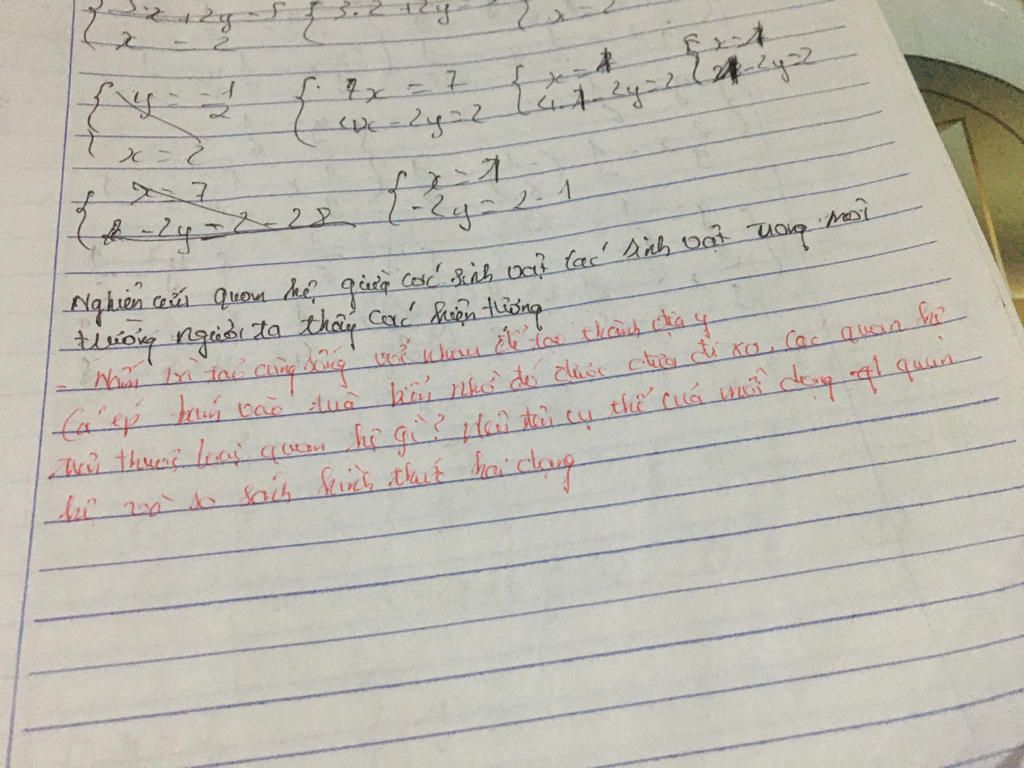 {3.2+2y=5 {3.2+2y= {
x = 2 x=2
{y = -1/2 {7x = 7 {x=1 {x=1
x=2 4x-2y=2 4.1-2y=2 4-2y=2
{x=7 {x=1
-2y=2-28 -2y=2-1
Nghiên cứu quan hệ giữa các sinh vật các sinh vật trong môi
trường người ta thấy các hiện tượng
- Nấm và tảo cùng sống với nhau để tạo thành địa y
Cá ép bám vào rùa biển nhờ đó được đưa đi xa. Các quan hệ
trên thuộc loại quan hệ gì? Nêu đặc cụ thể của mỗi dạng quan
hệ và so sánh hình thức hai dạng